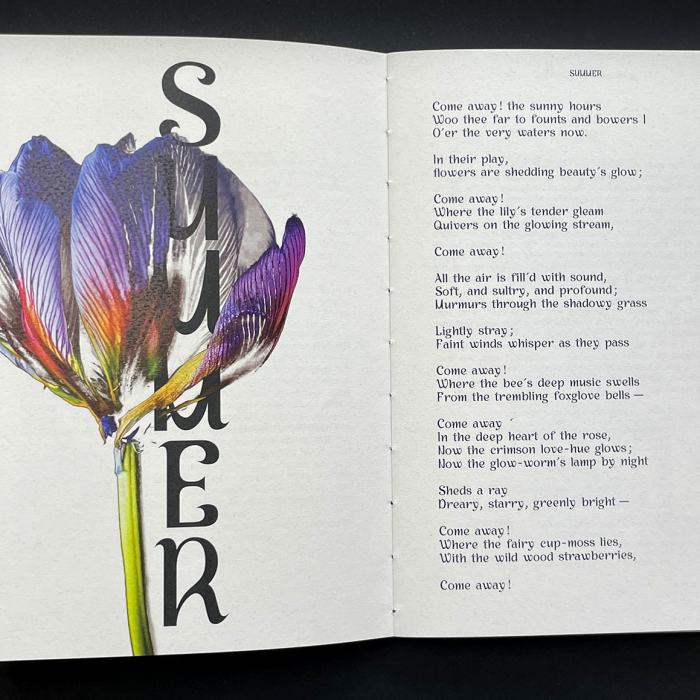 SUMMER
SUMMER
Come away! the sunny hours
Woo thee far to founts and bowers !
O'er the very waters now.
In their play,
flowers are shedding beauty´s glow;
Come away!
Where the lily´s tender gleam
Quivers on the glowing stream,
Come away!
All the air is fill´d with sound,
Soft, and sultry, and profound;
Murmurs through the shadowy grass
Lightly stray;
Faint winds whisper as they pass
Come away!
Where the bee´s deep music swells
From the trembling foxglove bells —
Come away ´
In the deep heart of the rose,
Now the crimson love-hue glows;
Now the glow-worm´s lamp by night
Sheds a ray
Dreary, starry, greenly bright —
Come away!
Where the fairy cup-moss lies,
With the wild wood strawberries,
Come away!